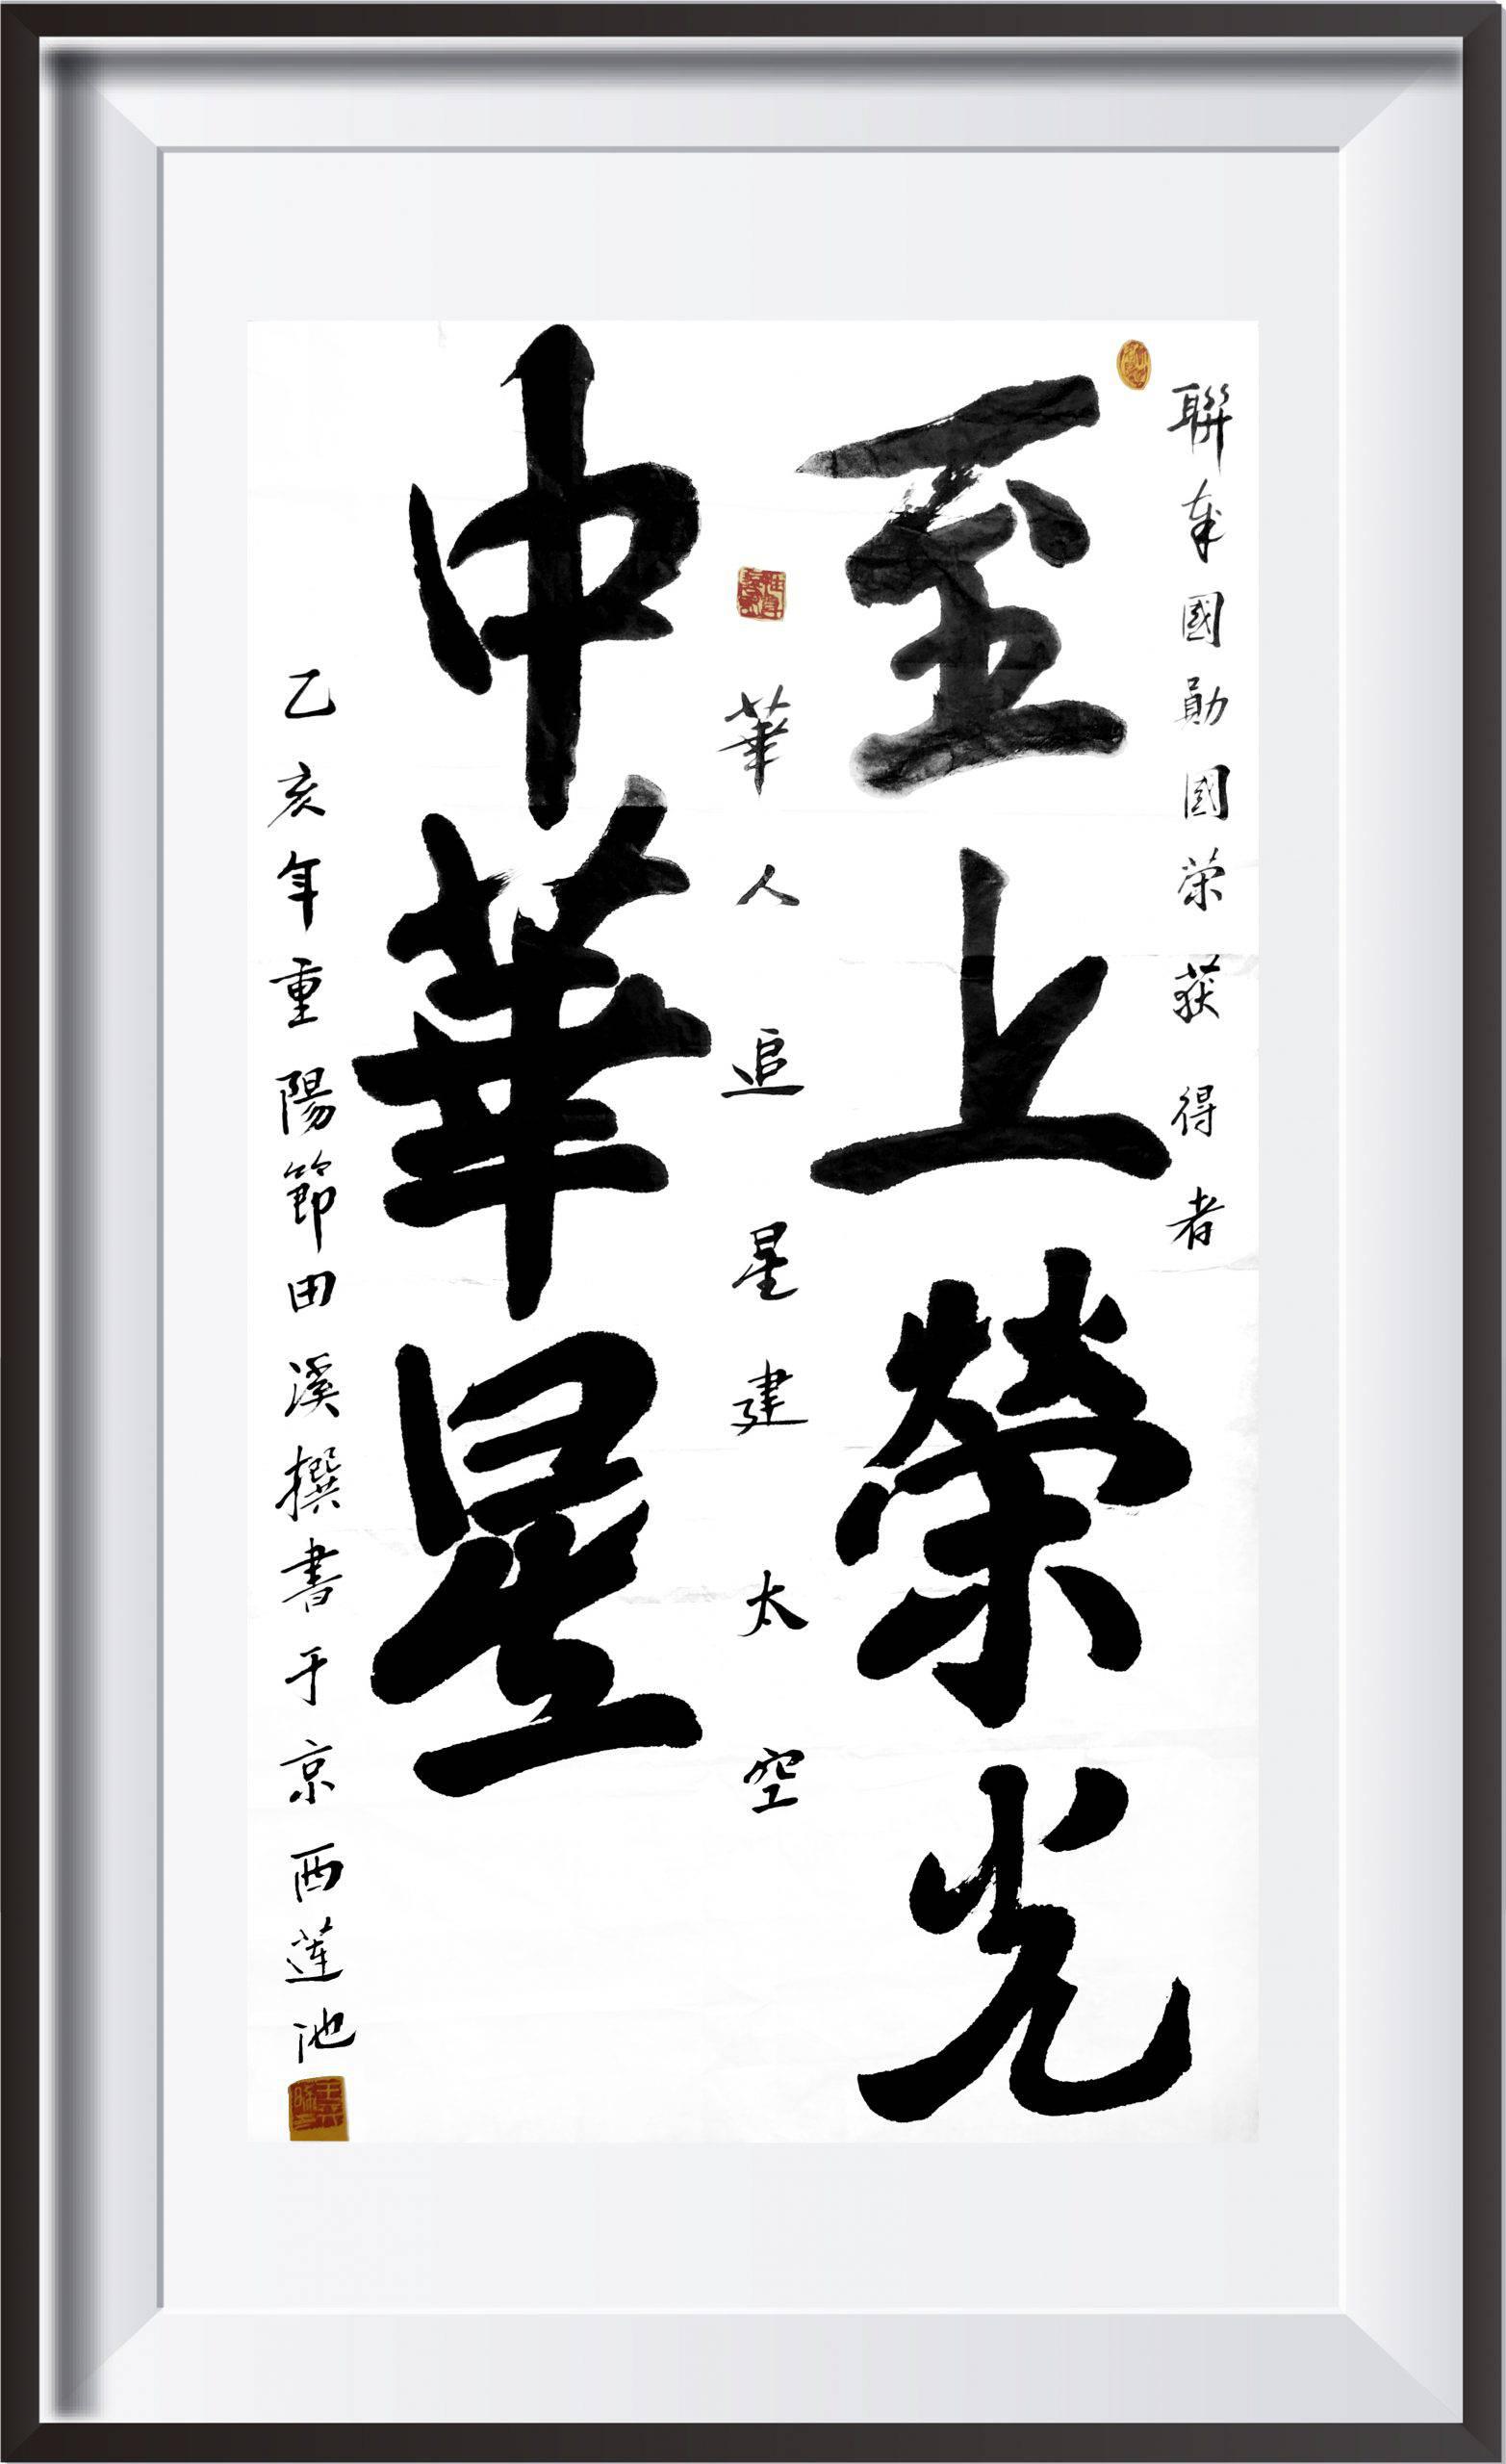 聯奉國勛國荣获得者
至上榮光
華人追星建太空
中華星
乙亥年重陽節田溪撰書于京西蓮池